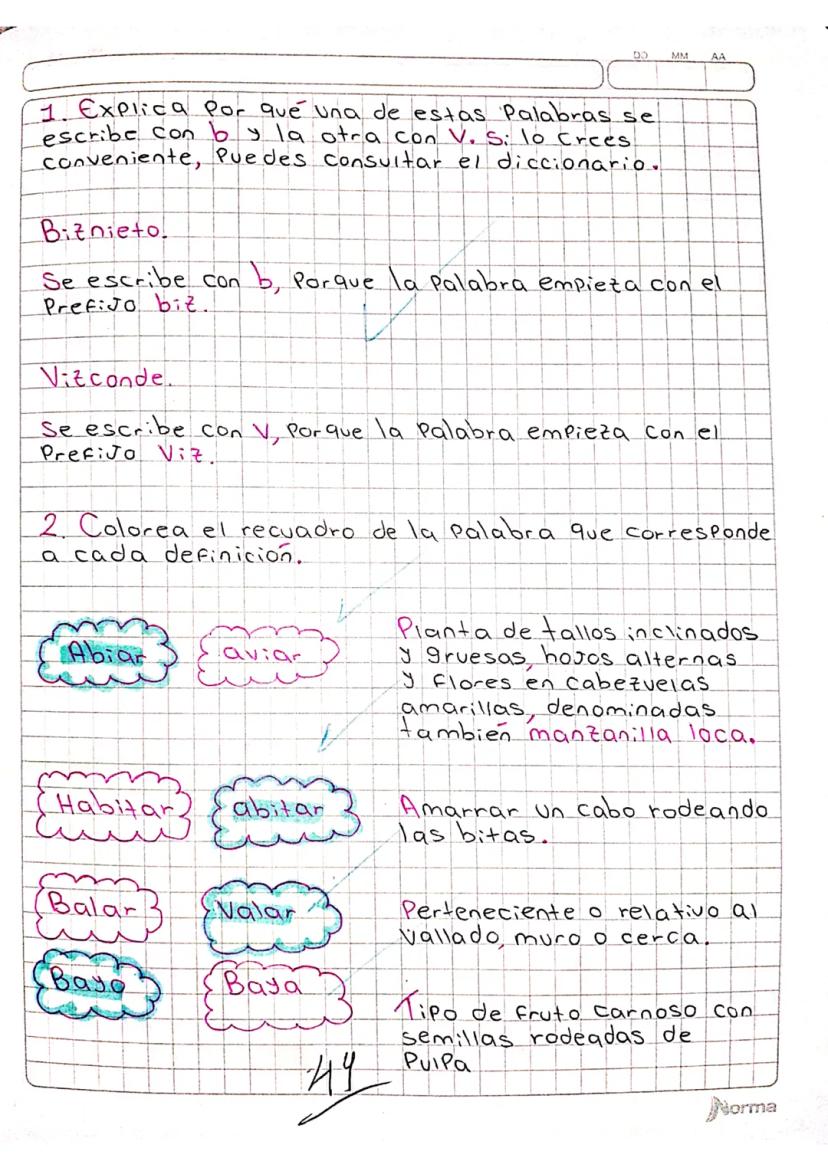 DD MM AA
1. Explica Por qué una de estas Palabras se
escribe con b y la otra con V. Si lo Crees
conveniente, Puedes consultar el diccionario.
Biznieto.
Se escribe con b, Porque la Palabra empieza con el
Prefijo biz.
Vizconde.
Se escribe con V, Porque la Palabra empieza con el
Prefijo Viz.
2. Colorea el recuadro de la Palabra que corresponde
a cada definición.
Abiar aviar Planta de tallos inclinados
y gruesos, hojos alternas
y flores en cabezuelas
amarillas, denominadas
también manzanilla loca.
Habitar abitar Amarrar un cabo rodeando
las bitas.
Balar Valar Perteneciente o relativo al
Vallado, muro o cerca.
Bayo Baya Tipo de fruto carnoso con
semillas rodeadas de
Pulpa
44
Norma